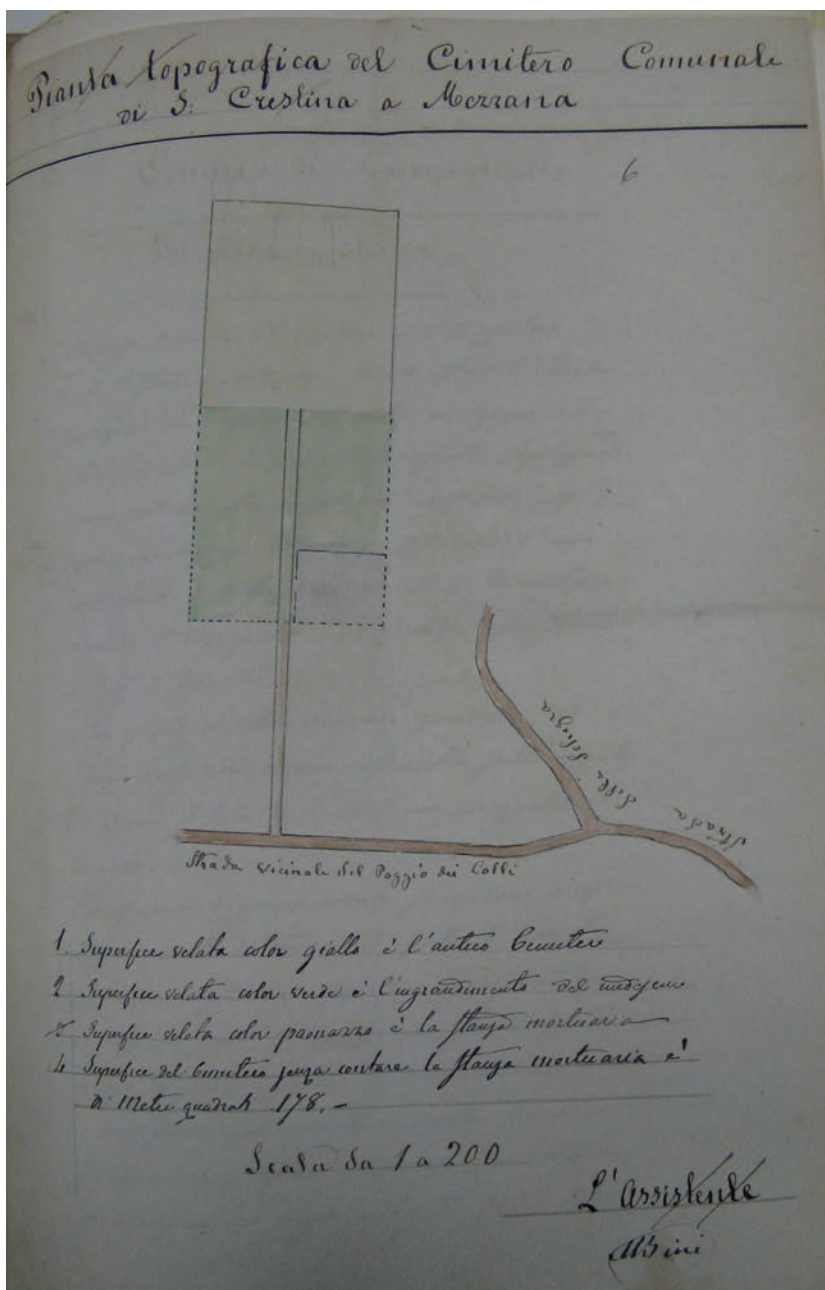 Pianta topografica del Cimitero Comunale
di S. Crestina a Mezzana
6
Strada della Schegra
Strada vicinale del Poggio dei Colli
1. Superfice velata color giallo è l'antico Cimitero
2 Superfice velata color verde è l'ingrandimento del medesimo
3 Superfice velata color paonazzo è la stanza mortuaria
4 Superfice del Cimitero senza contare la stanza mortuaria è
di Metri quadrati 178.-
Scala da 1 a 200
L'Assistente